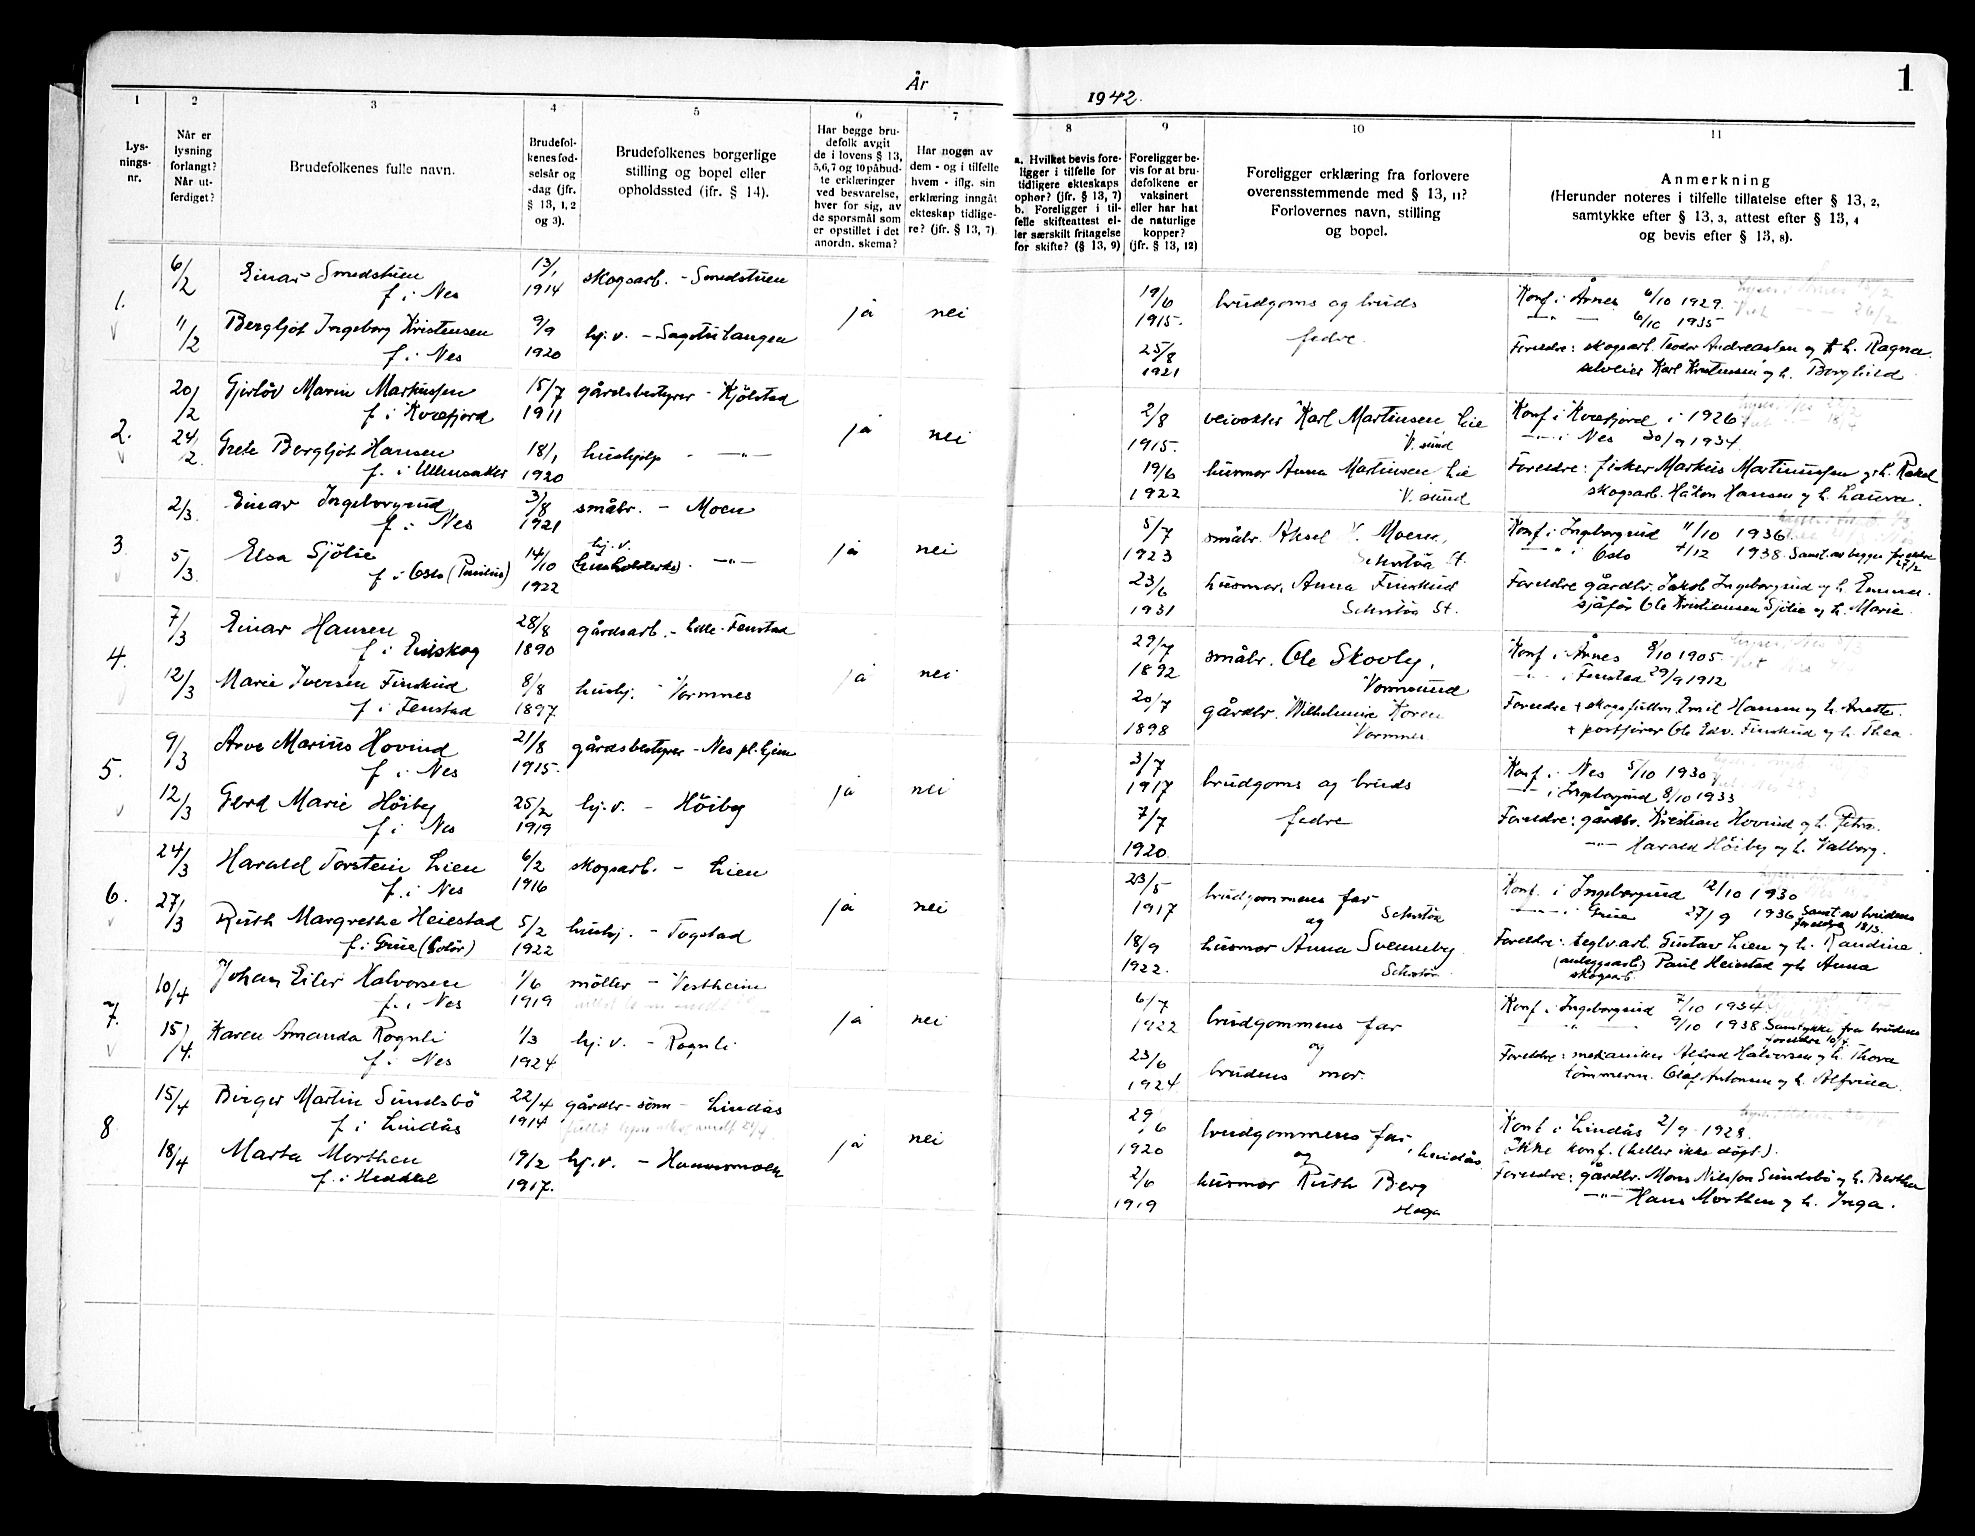 År
1942.
1
1
2
3
4
5
6
7
8
9
10
11
Lys-
nings-
nr.
Når er
lysning
forlangt?
Når ut-
ferdiget?
Brudefolkenes fulle navn.
Brudefol-
kenes fød-
selsår og
-dag (jfr.
§ 13, 1, 2
og 3).
Brudefolkenes borgerlige
stilling og bopel eller
opholdssted (ifr. § 14).
Har begge bru-
defolk avgit
de i lovens § 13,
5, 6, 7 og 10 påbud-
te erklæringer
ved besvarelse,
hver for sig, av
de spørsmål som
er opstillet i det
anordn. skema?
Har nogen av
dem - og i tilfelle
hvem - iflg. sin
erklæring inngåt
ekteskap tidlige-
re? (jfr. § 13, 7).
a. Hvilket bevis fore-
ligger i tilfelle for
tidligere ekteskaps
ophør? (jfr. § 13, 7)
b. Foreligger i til-
felle skifteattest el-
ler særskilt fritagelse
for skifte? (§ 13, 9)
Foreligger be-
vis for at bru-
defolkene er
vaksinert
eller har hat
de naturlige
kopper?
(jfr. § 13, 12)
Foreligger erklæring fra forlovere
overensstemmende med § 13, 11?
Forlovernes navn, stilling
og bopel.
Anmerkning
(Herunder noteres i tilfelle tillatelse efter § 13, 2,
samtykke efter § 13, 3, attest efter § 13, 4
og bevis efter § 13, 8).
1.
6/2
Einar Smedstuen
f. i Nes
13/1
1914
skogsarb. - Smedstuen
ja
nei
19/6
1915.
brudgoms og bruds
fedre.
Konf. i Årnes 6/10 1929.
11/2
Bergljot Ingeborg Kristensen
f. i Nes
9/9
1920
hj. v. - Sagstulangen
25/8
1921
—"— — 6/10 1935
Foreldre: skogsarb. Teodor Andreassen og h. Ragna.
selveier Karl Kristensen og h. Berghild
2.
20/2
Gjerløv Marin Markussen
f. i Kvæfjord
15/7
1911
gårdsbestyrer - Kjölstad
ja
nei
2/8
1915.
veivokter Karl Martinsen, Lie
V. sund
Konf. i Kvæfjord i 1926
24/2.
Grete Bergljot Hansen
f. i Ullensaker
18/1
1920
hushjelp - —"—
19/6
1922
husmor Anna Martinsen Lie
V. sund
—"— i Nes 30/9 1934.
Foreldre: fisker Markus Martinussen og h. Rakel
skogsarb. Håkon Hansen og h. Laura.
3.
2/3.
Einar Ingeborgrud
f. i Nes
3/8
1921
småbr. - Moen
ja
nei
5/7
1923
småbr. Aksel V. Moen,
St.
Konf. i Ingeborgrud 11/10 1936
5/3.
Elsa Sjölie
f. i Oslo (Paulus)
14/10
1922
hj. v.
(husholderske). —"—
23/6
1931
husmor, Anna Finskud
St.
—"— i Oslo 4/12 1938. Samt. av begges foreldre 27/2
Foreldre gårdbr. Jakob Ingeborgrud og h. Emma.
sjåfør Ole Kristiansen Sjölie og h. Marie.
4.
7/3
Einar Hansen
f. i Eidskog
28/8
1890
gårdsarb. - Lille-Fenstad
ja
nei
29/7
1892
småbr. Ole Skovly,
Vormsund
Konf. i Årnes 8/10 1905.
12/3
Marie Iversen Finskud
f. i Fenstad
8/8
1897.
hushj. - Vormnes
20/7
1898
gårdbr. Wilhelmine Koren
Vormnes
—"— i Fenstad 29/9 1912
Foreldre + skogsfullm. Emil Hansen og h. Anette.
+ postfører Ole Edv. Finskud og h. Thea.
5.
9/3
Arve Marius Hovind
f. i Nes
21/8
1915.
gårdsbestyrer - Nes pl. hjem
ja
nei
3/7
1917
brudgoms og bruds
fedre
Konf. i Nes 5/10 1930
12/3
Gerd Marie Höiby
f. i Nes
25/2
1919
hj. v. - Höiby
7/7
1920.
—"— i Ingeborgrud 8/10 1933
Foreldre: gårdbr. Kristian Hovind og h. Petra.
—"— Harald Höiby og h. Valborg.
6.
24/3
Harald Torstein Lien
f. i Nes
6/2
1916
skogsarb. - Lien
ja
nei
23/5
1917
brudgommens far
og
Konf. i Ingeborgrud 12/10 1930
27/3
Ruth Margrethe Heiestad
f. i Grue (Solör)
5/2
1922
hushj. - Togstad
18/9
1922.
husmor Anna Svenneby
—"— i Grue 27/9 1936 Samt. av brudens foreldre 18/3.
Foreldre: teglv.arb. Gustav Lien og h. Randine.
(anleggsarb.) Paul Heiestad og h. Anna
skogsarb.
7.
10/4
Johan Eiler Halvorsen
f. i Nes
1/6
1919
möller - Vestheim
ja
nei
6/7
1922
brudgommens far
og
Konf. i Ingeborgrud 7/10 1934.
15/4.
Karen Amanda Rognli
f. i Nes
1/3
1924
hj. v. - Rognli
23/6
1924
brudens mor.
—"— 9/10 1938. Samtykke fra brudens foreldre 10/4.
Foreldre: mekaniker Alfred Halvorsen og h. Thora
tömmerm. Olaf Antonsen og h. Alfrida.
8
15/4
Birger Martin Sundsbö
f. i Lindås
22/4
1914
gårdbr-sönn - Lindås
ja
nei
29/6
1920
brudgommens far, Lindås
og
Konf. i Lindås 2/9 1928.
18/4
Marta Morthen
f. i Heddal
19/2
1917.
hj. v. -
2/6
1919
husmor Ruth Berg
Haga
Ikke konf. (heller ikke döpt).
Foreldre: gårdbr. Mons Nilsson Sundsbö og h. Berthe
—"— Hans Morthen og h. Inga.